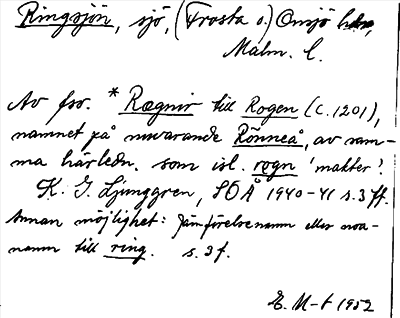 Ringsjön, sjö, (Frosta o.) Onsjö hdr,
Malm. l.
Av fsv. *Rægnir till Rogen (c. 1201),
namnet på nuvarande Rönneå, av sam-
ma härledn. som isl. rogn 'makter'.
K. G. Ljunggren, SOÅ 1940-41 s. 3 ff.
Annan möjlighet: Jämförelsenamn eller noa-
namn till ring. s. 3 f.
E. M-t 1952